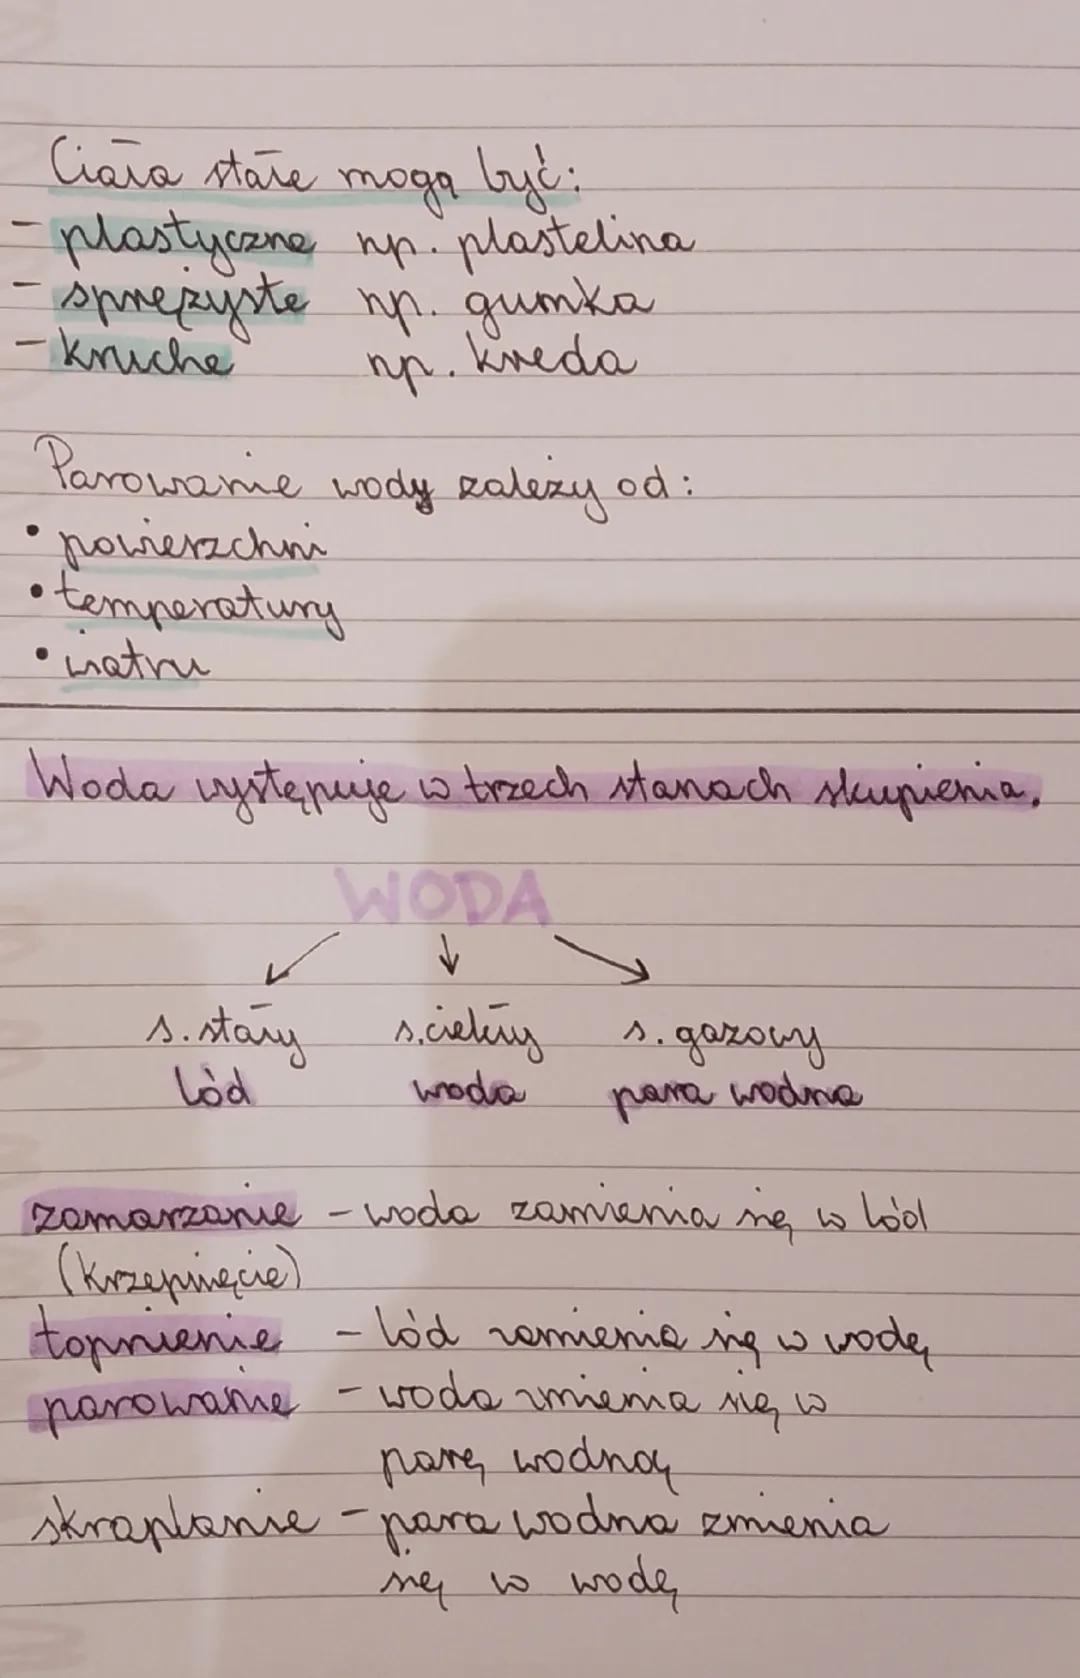 Ciała stałe mogą być:
- plastyczne np. plastelina
- sprężyste np. gumka
- kruche np. kreda
Parowanie wody zależy od:
• powierzchni
• temperatury
• wiatru
Woda występuje w trzech stanach skupienia.
WODA
s. stały s. ciekły s. gazowy
lód woda para wodna
zamarzanie - woda zamienia się w lód
(krzepnięcie)
topnienie - lód zamienia się w wodę
parowanie - woda zmienia się w
parę wodną
skraplanie - para wodna zmienia
się w wodę